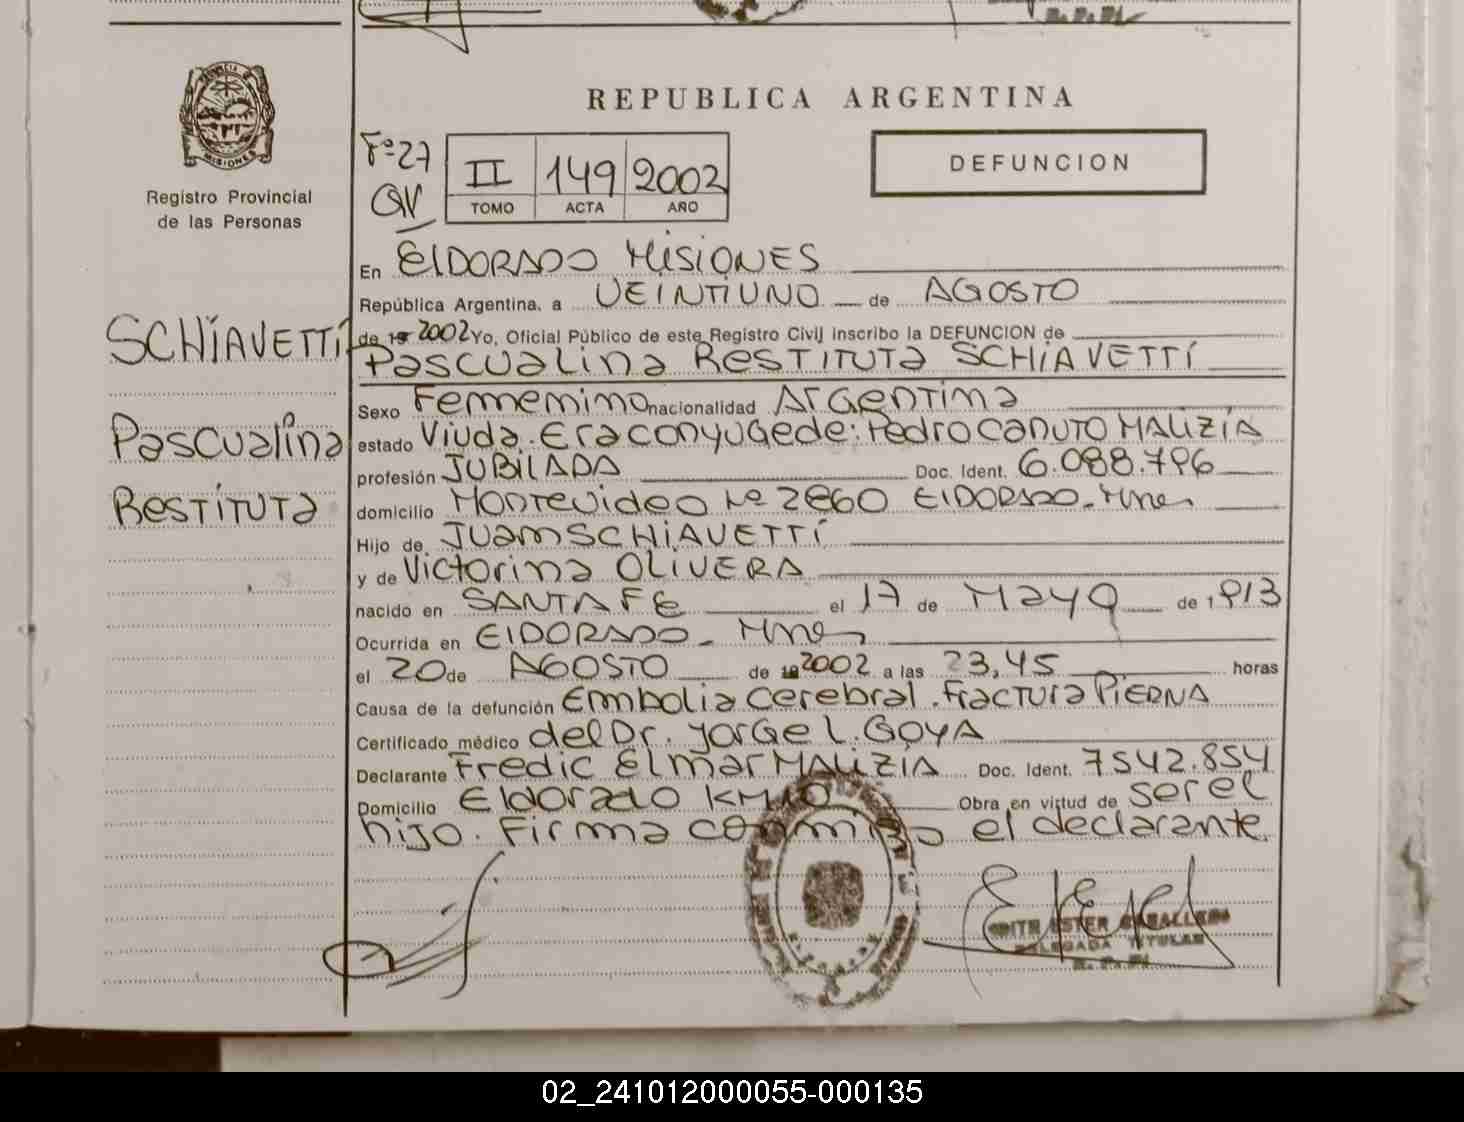 REPUBLICA ARGENTINA
PROVINCIA DE
MISIONES
Registro Provincial
de las Personas
Fº 27
II 149 2002
TOMO ACTA AÑO
DEFUNCION
SCHIAVETTI
Pascualina
Restituta
En ElDORADO MISIONES
República Argentina, a VEINTIUNO de AGOSTO
de 19 2002 Yo, Oficial Público de este Registro Civil inscribo la DEFUNCION de
Pascualina RESTITUTa SCHIAVETTI
Sexo Femenino nacionalidad ARGENTINa
estado Viuda. Era conyuge de: Pedro CANUTO MALIZIA
profesión JUBILADA Doc. Ident. 6.088.796
domicilio Montevideo Nº 2860 ElDORADO-Mnes
Hijo de JUan SCHIAVETTI
y de Victorina OLIVERA
nacido en SANTA FE el 17 de Mayo de 1913
Ocurrida en ElDORADO - Mnes
el 20 de AGOSTO de 19 2002 a las 23,45 horas
Causa de la defunción Embolia cerebral. Fractura PIERNA
Certificado médico del Dr. Jorge L. GOYA
Declarante Fredic Elmar MALIZIA Doc. Ident. 7542.854
Domicilio Eldorado KM10 Obra en virtud de ser el
hijo. Firma conmigo el declarante.
EDITH ESTER CABALLERO
DELEGADA TITULAR
R.P.P.
02_241012000055-000135